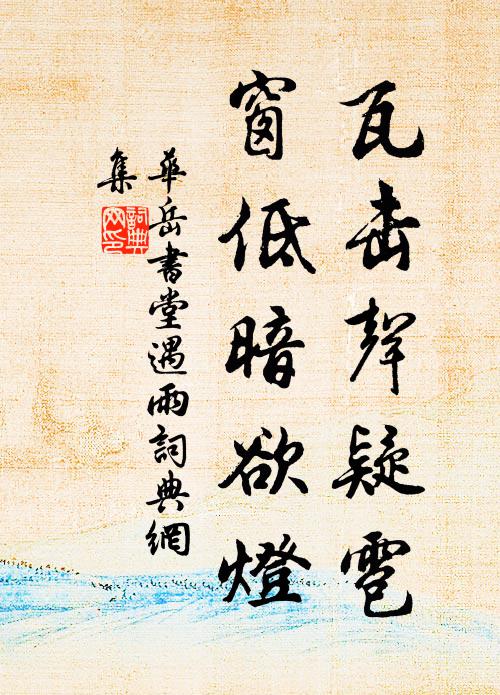 瓦击聲疑雹
窗低暗欲燈
華岳書堂遇雨詞典網
集
詞典
网印